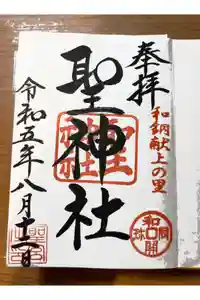 奉拝
和銅献上の里
聖神社
令和五年八月十一日
和同開珎